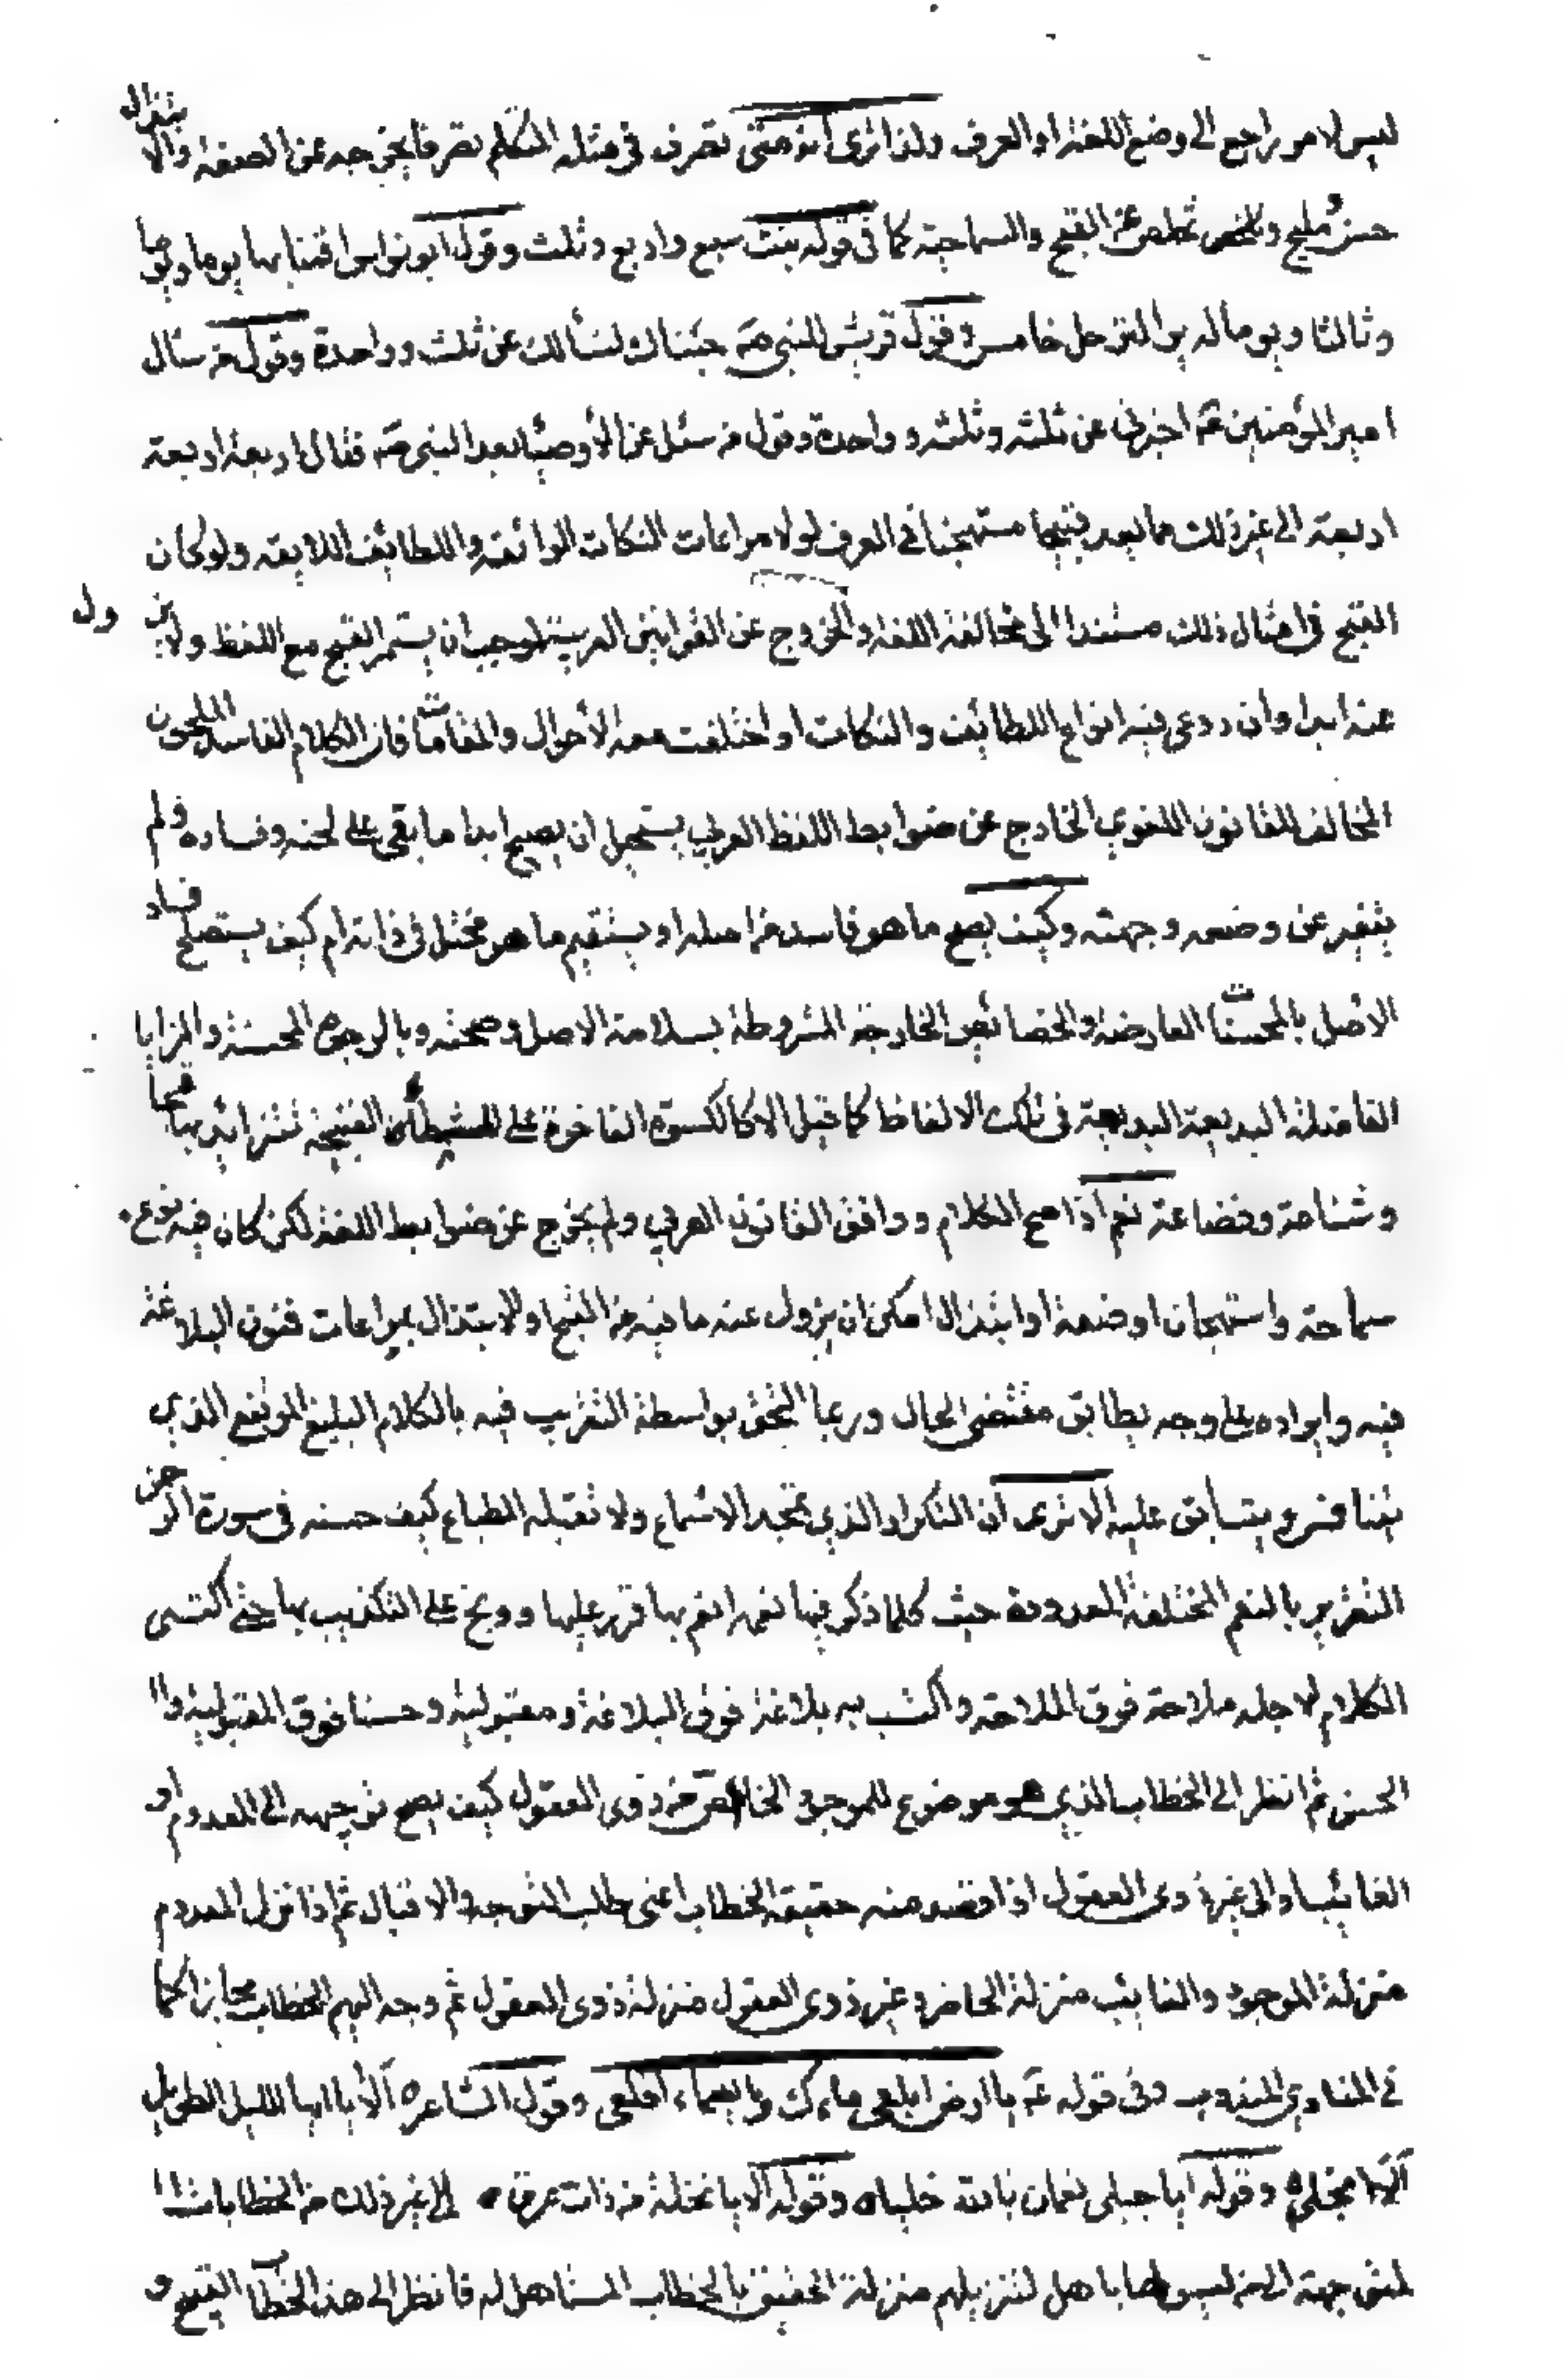 ليس لامر راجع الى وضع اللغة او العرف ولذا ترى انه متى تصرف في مثله المتكلم تصرفا يخرجه عن الصنعة والابتذال
حسن مليح وتخلص عن القبح والسماجة كما في قوله بنت سبع واربع وثلث وقول ابو نواس اقمنا بها يوما ويوما
وثالثا ويوما له يوم الترحل خامس وقول قريش للنبي صم جئناك لنسألك عن ثلث وواحدة وقول من سئال
امير المؤمنين عم اخبرني عن ثلثه وثلثه وواحدة وقول من سئل عن الأوصياء بعد النبي صم فقال اربعة اربعة
اربعة الى غير ذلك مما يعد قبيحا مستهجنا في العرف لولا مراعات النكات الرائقه واللطائف اللايقه ولو كان
القبح في امثال ذلك مستندا الى مخالفة اللغة والخروج عن القوانين العربية لوجب ان يستمر القبح مع اللفظ ولا يزول
عنه ابدا وان روعي فيه انواع اللطائف والنكات او اختلفت معه الأحوال والمقامات فان الكلام الفاسد الملحون
المخالف للقانون اللغوي الخارج عن ضوابط اللفظ العربي يستحيل ان يصح ابدا ما بقى على لحنه وفساده ولم
يتغير عن وضعه وجهته وكيف يصح ما هو فاسد من اصله او يستقيم ما هو مختل في ذاته ام كيف يستصلح فساد
الاصل بالمحسنات العارضة والخصائص الخارجة المشروطة بسلامة الاصل وصحته وبالوجوه المحسنة والمزايا
الفاضلة البديعة البديعة في تلك الالفاظ كما قيل الا كالكسوة الفاخرة على القبيحة تتزايد بها قبحا
وشناعة وفضاعة نعم اذا صح الكلام ووافق القانون العربي ولم يخرج عن ضوابط اللغة لكن كان فيه نوع
سماجة واستهجان او ضعة او ابتذال امكن ان يزول عنه ما فيه من القبح او الابتذال بمراعات فنون البلاغة
فيه وايراده على وجه يطابق مقتضى الحال وربما التحق بواسطة التقريب فيه بالكلام البليغ الرفيع الذي
يتنافس ويتسابق عليه الا ترى ان التكرار الذي تمجه الاسماع ولا تقبله الطباع كيف حسنه في سورة الرحمن
التقرير بالنعم المختلفة المعدودة حيث كلما ذكر فيها نعمه انعم بها قرر عليها ووبخ على التكذيب بها حتى اكتسى
الكلام لاجله ملاحة فوق الملاحة واكتسب به بلاغة فوق البلاغة ومقبولية وحسنا فوق المقبولية و
الحسن ثم انظر الى الخطاب الذي هو موضوع للموجود الحاضر من ذوي العقول كيف يصح توجيهه الى المعدوم او
الغائب او الى غير ذوي العقول اذا قصد منه حقيقة الخطاب اعني طلب التوجه والاقبال ثم اذا نزل المعدوم
منزلة الموجود والغائب منزلة الحاضر وغير ذوي العقول منزلة ذوي العقول ثم وجه اليهم الخطاب مجازا كما
في المنادي المندوب وفي قوله عم يا ارض ابلعي ماءك ويا سماء اقلعي وقول الشاعر ه ألا يا ايها الليل الطويل
ألا انجلي وقوله ايا جبلي نعمان بالله خليا ه وقوله ألا يا نخلة من ذات عرق ه الى غير ذلك من الخطابات
المتوجهة الى من ليسوا لها باهل لتنزيلهم منزلة الحقيق بالخطاب المستاهل له فانظر الى هذا الخطاب القبيح و